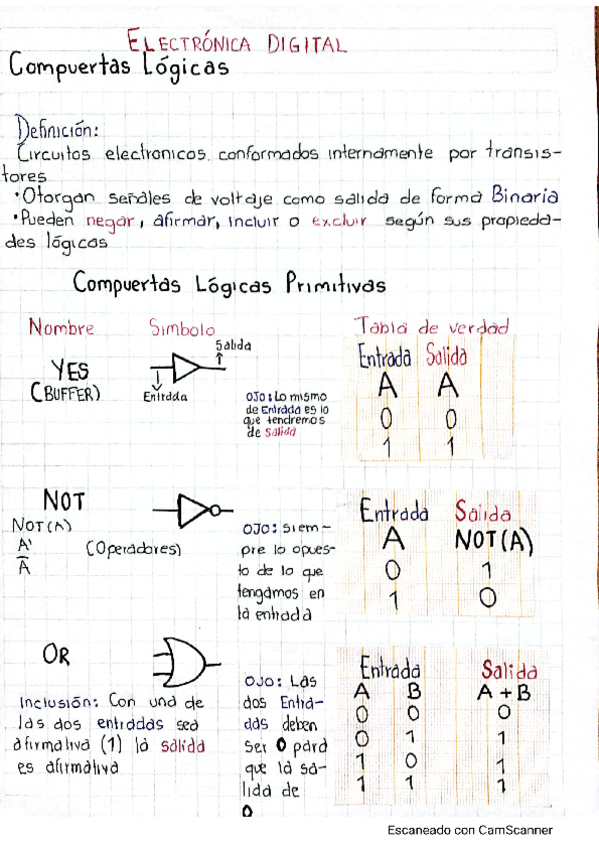 ELECTRÓNICA DIGITAL
Compuertas Lógicas
Definición:
Circuitos electronicos conformados internamente por transis-
tores
•Otorgan señales de voltaje como salida de forma Binaria
•Pueden negar, afirmar, incluir o excluir según sus propieda-
des lógicas
Compuertas Lógicas Primitivas
Nombre Simbolo Tabla de verdad
YES
(BUFFER)
Salida
Entrada
OJO: Lo mismo
de Entrada es lo
que tendremos
de salida
Entrada Salida
A A
0 0
1 1
NOT
NOT(A)
A'
A̅
(Operadores)
OJO: siem-
pre lo opues-
to de lo que
tengamos en
la entrada
Entrada Salida
A NOT(A)
0 1
1 0
OR
Inclusión: Con una de
las dos entradas sea
afirmativa (1) la salida
es afirmativa
OJO: Las
dos Entra-
das deben
ser 0 para
que la sa-
lida de
0
Entrada Salida
A B A+B
0 0 0
0 1 1
1 0 1
1 1 1
Escaneado con CamScanner